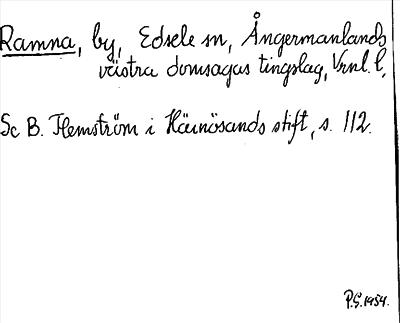 Ramna, by, Edsele sn, Ångermanlands
västra domsagas tingslag, Vrnl. l,
Sc B. Flemström i Härnösands stift, s. 112.
P.G. 1954.